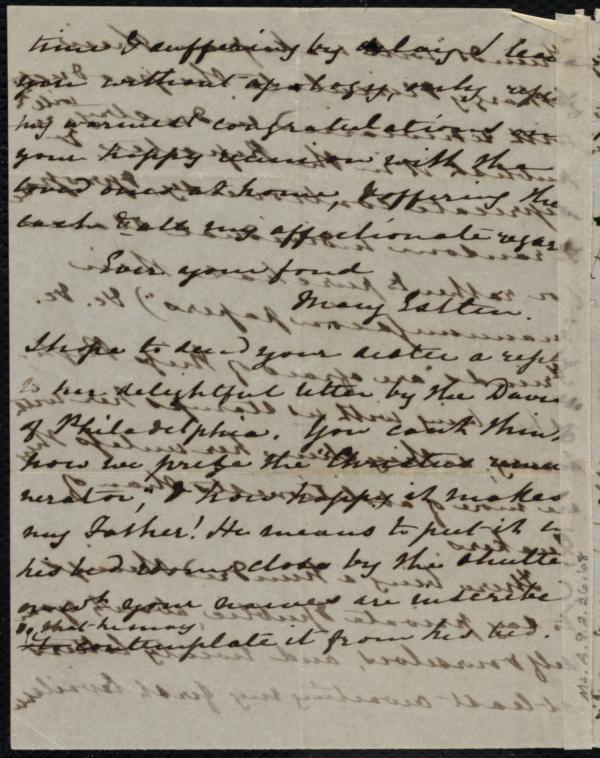 time & suffering by delay, I lea
you without apology, only repe
my warmest congratulations on
your happy reunion with the
loved ones at home, & offering the
each & all my affectionate regar
Ever your fond
Mary Estlin.
I hope to send your sister a reply
to her delightful letter by the Davi
of Philadelphia. You can't think
how we prize the Christian
nerator, & how happy it makes
my Father! He means to put it in
his bedroom, close by the shutte
on wh your names are inscribe
d, that he may
to contemplate it from his bed.
Ms.A.9.2.26.68